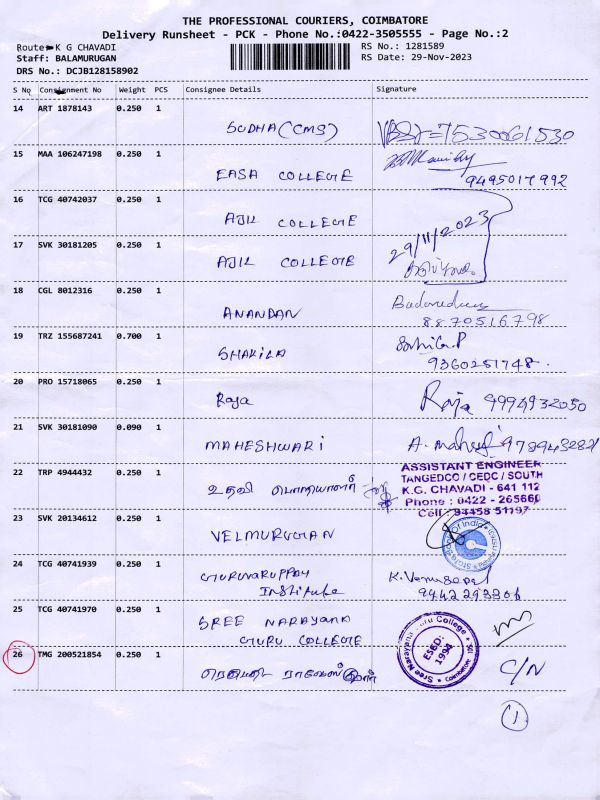 THE PROFESSIONAL COURIERS, COIMBATORE
Delivery Runsheet - PCK - Phone No.:0422-3505555 - Page No.:2
Route: K G CHAVADI RS No.: 1281589
Staff: BALAMURUGAN RS Date: 29-Nov-2023
DRS No.: DCJB128158902
S No Consignment No Weight PCS Consignee Details Signature
14 ART 1878143 0.250 1
SUDHA (CMS) 7530061530
15 MAA 106247198 0.250 1
EASA COLLEGE 9495017992
16 TCG 40742037 0.250 1
AJK COLLEGE
17 SVK 30181205 0.250 1 29/11/2023
AJK COLLEGE
18 CGL 8012316 0.250 1
ANANDAN 8870516798
19 TRZ 155687241 0.700 1
SHAKILA 9360251748.
20 PRO 15718065 0.250 1
Raja Raja 9994932050
21 SVK 30181090 0.090 1
MAHESHWARI A.
ASSISTANT ENGINEER
22 TRP 4944432 0.250 1 TANGEDCO / CEDC / SOUTH
உதவி பொறியாளர் K.G. CHAVADI - 641 112
Phone : 0422 - 265660
23 SVK 20134612 0.250 1 Cell :
VELMURUGAN State Bank Of India
24 TCG 40741939 0.250 1
GURUVARUPPAY K. Venugopal
Institute 9442293306
25 TCG 40741970 0.250 1
SREE NARAYANA Sree Narayana Guru College
GURU COLLEGE ESED: 1994 Coimbatore
26 TMG 200521854 0.250 1
C/N
1